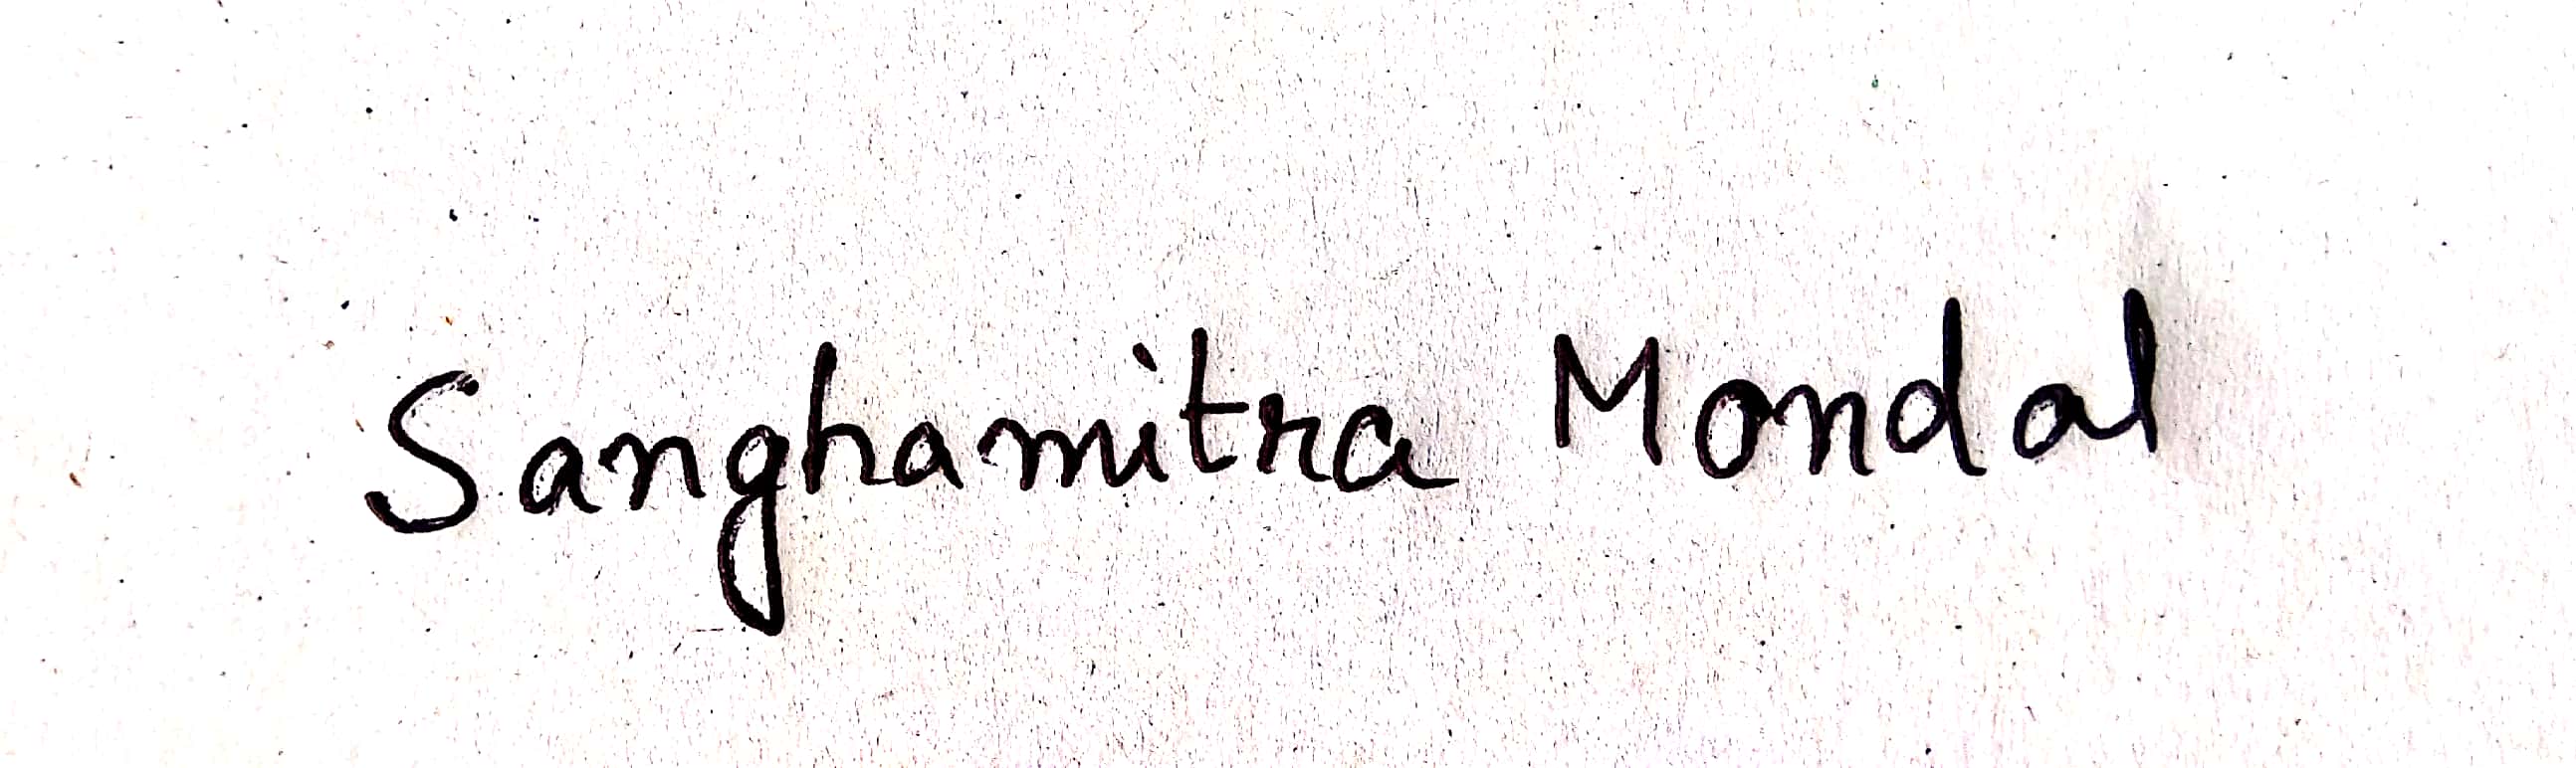 Sanghamitra Mondal